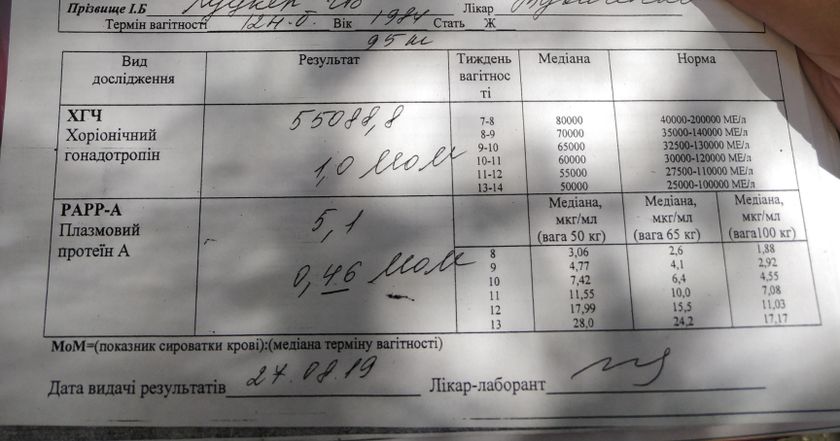 Прізвище І.Б Лікар
Термін вагітності 12 н. Вік 1984 Стать Ж
95 кг
Вид дослідження Результат Тиждень вагітності Медіана Норма
ХГЧ
Хоріонічний
гонадотропін
55088,8
1,0 МоМ
7-8 80000 40000-200000 МЕ/л
8-9 70000 35000-140000 МЕ/л
9-10 65000 32500-130000 МЕ/л
10-11 60000 30000-120000 МЕ/л
11-12 55000 27500-110000 МЕ/л
13-14 50000 25000-100000 МЕ/л
PAPP-A
Плазмовий
протеїн А
5,1
0,46 МоМ
Медіана, мкг/мл (вага 50 кг) Медіана, мкг/мл (вага 65 кг) Медіана, мкг/мл (вага100 кг)
8 3,06 2,6 1,88
9 4,77 4,1 2,92
10 7,42 6,4 4,55
11 11,55 10,0 7,08
12 17,99 15,5 11,03
13 28,0 24,2 17,17
МоМ=(показник сироватки крові):(медіана терміну вагітності)
Дата видачі результатів 27.08.19 Лікар-лаборант